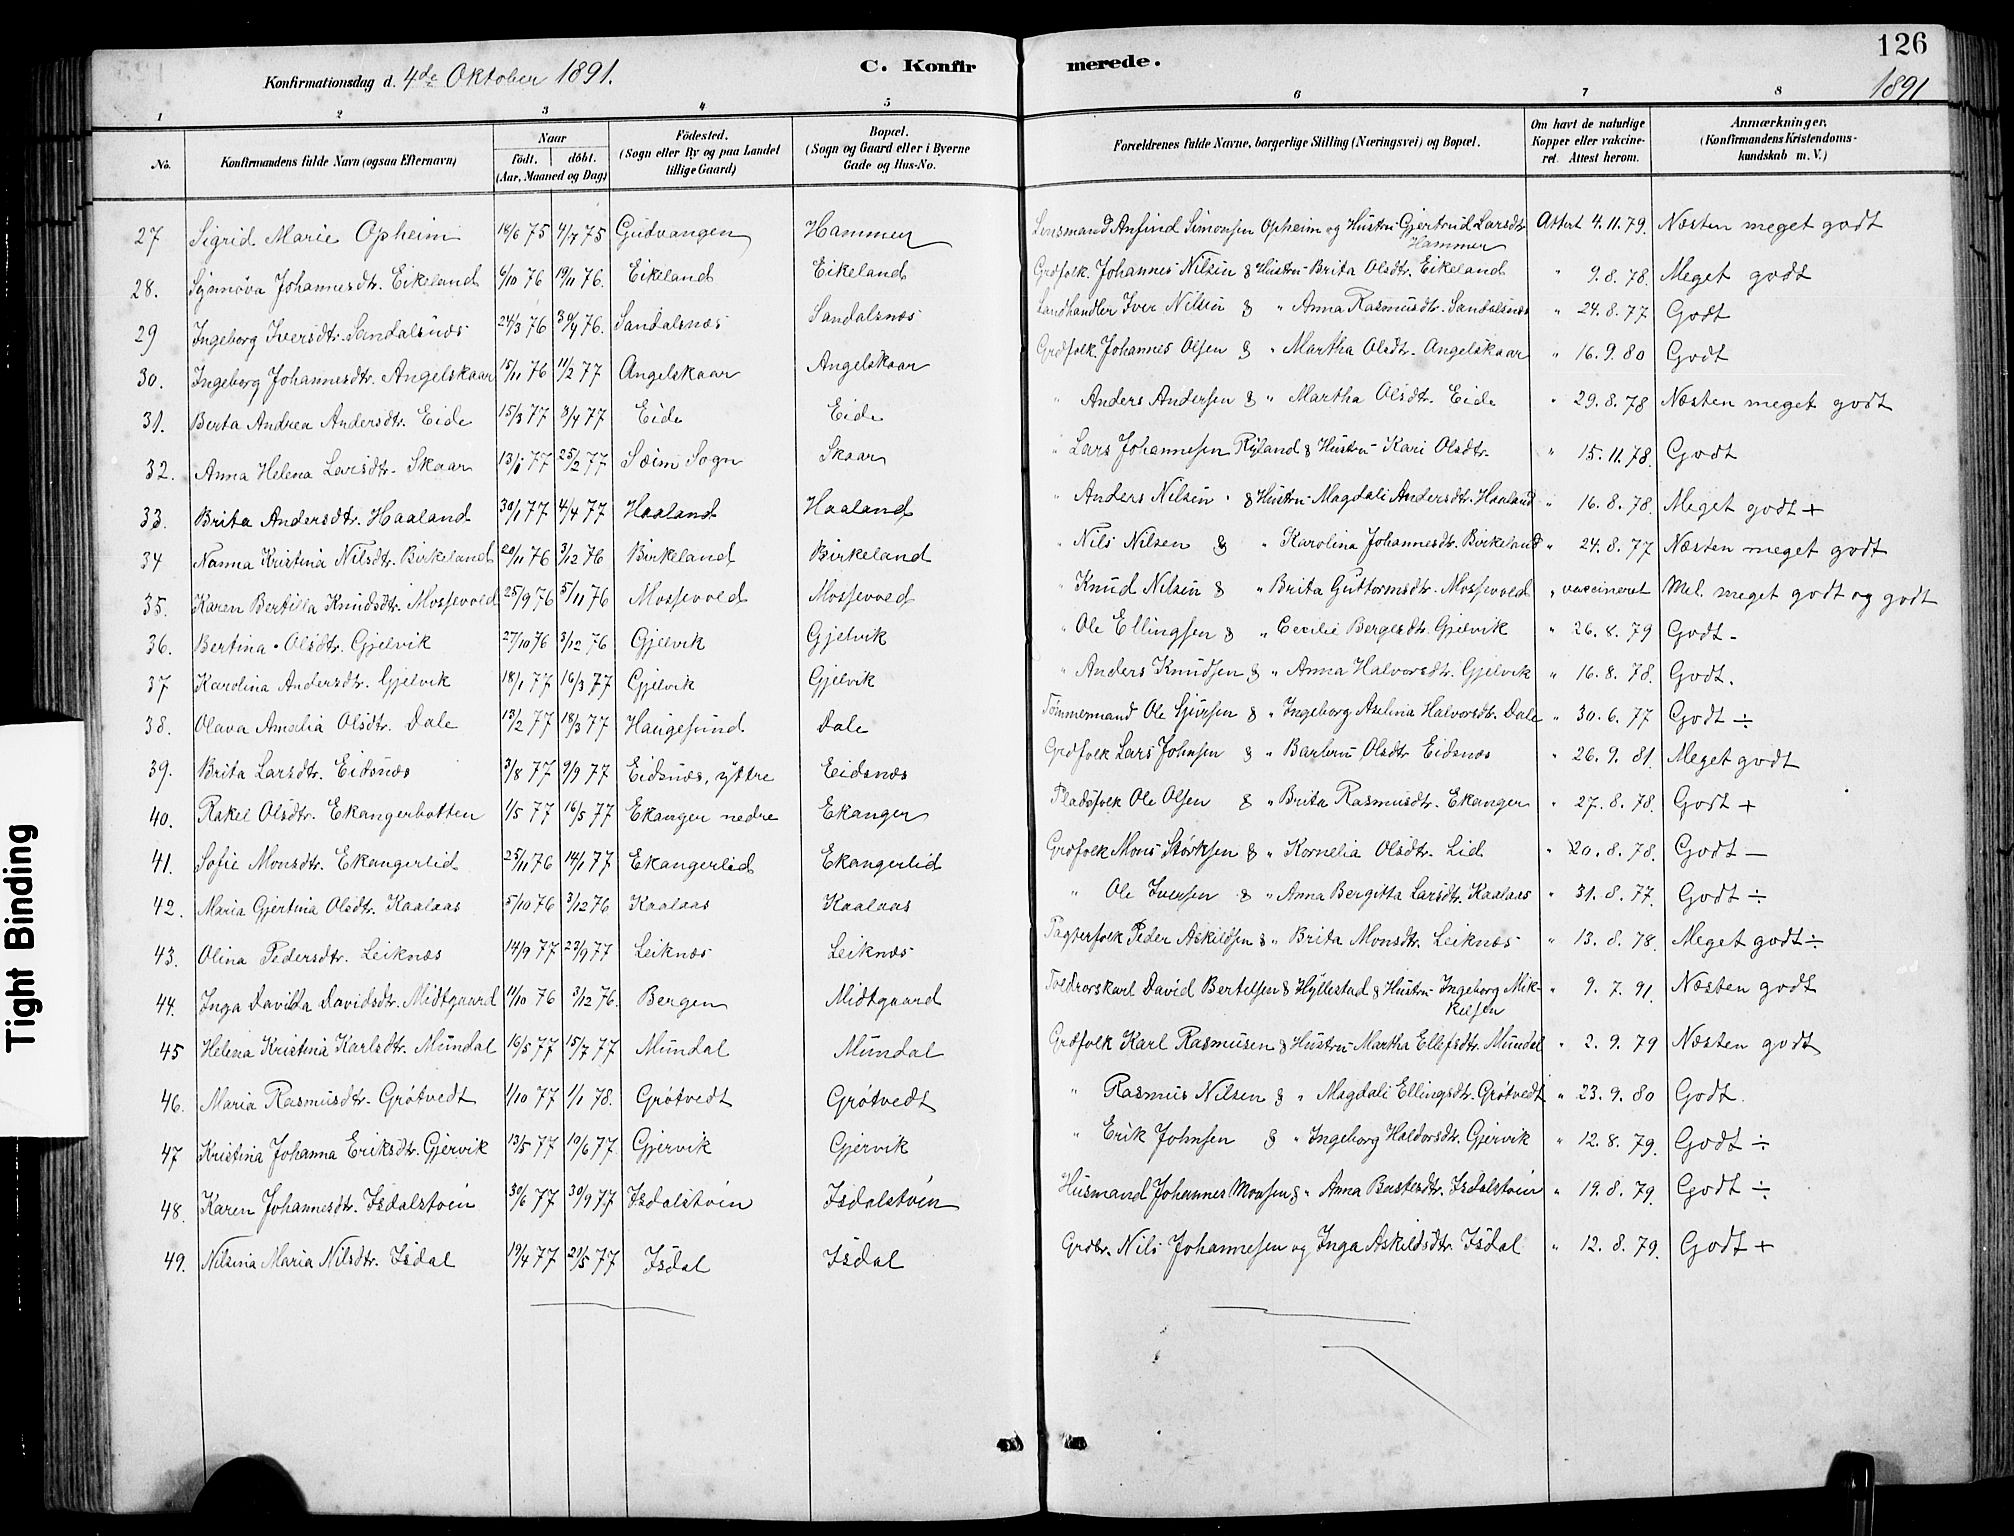 126
Konfirmationsdag d. 4de Oktober 1891. C. Konfirmerede. 1891
1 2 3 4 5 6 7 8
No. Konfirmandens fulde Navn (ogsaa Efternavn) Naar født. døbt. (Aar, Maaned og Dag) Fødested. (Sogn eller By og paa Landet tillige Gaard) Bopæl. (Sogn og Gaard eller i Byerne Gade og Hus-No. Forældrenes fulde Navne, borgerlige Stilling (Næringsvei) og Bopæl. Om havt de naturlige Kopper eller vakcineret. Attest herom. Anmærkninger. (Konfirmandens Kristendomskundskab m. V.)
27 Sigrid Marie Opheim 18/6 75 4/7 75 Gudvangen Hammer Lensmand Anfind Simonsen Opheim og Hustru Gjertrud Larsdtr. Hammer Attest 4.11.79. Næsten meget godt
28. Synnøva Johannesdtr. Eikeland 6/10 76 19/11 76. Eikeland Eikeland Grdfolk. Johannes Nilsen & Hustru Brita Olsdtr. Eikeland " 9.8.78. Meget godt
29 Ingeborg Iversdtr. Sandalsnæs 24/3 76 30/4 76. Sandalsnæs Sandalsnæs Landhandler Iver Nilsen & " Anna Rasmusdtr. Sandalsnæs " 24.8.77 Godt
30. Ingeborg Johannesdtr. Angelskaar 15/11 76 11/2 77 Angelskaar Angelskaar Grdfolk. Johannes Olsen & " Martha Olsdtr. Angelskaar " 16.9.80 Godt
31. Berta Andrea Andersdtr. Eide 15/3 77 3/4 77 Eide Eide " Anders Andersen & " Martha Olsdtr. Eide " 29.8.78 Næsten meget godt
32. Anna Helena Larsdtr. Skaar 13/1 77 25/2 77 Sæim Sogn Skaar " Lars Johannesen Ryland & Hustru Kari Olsdtr. " 15.11.78. Godt
33. Brita Andersdtr. Haaland 30/1 77 4/4 77 Haaland Haaland " Anders Nilsen & Hustru Magdali Andersdtr. Haaland " 16.8.78. Meget godt +
34 Nanna Kristina Nilsdtr. Birkeland 20/11 76 3/12 76 Birkeland Birkeland " Nils Nilsen & " Karolina Johannesdtr. Birkeland " 24.8.77 Næsten meget godt
35. Karen Bertilla Knudsdtr. Mossevold 25/9 76 5/11 76 Mossevold Mossevold " Knud Nilsen & " Brita Guttormsdtr. Mossevold " vaccineret Mel. meget godt og godt
36. Bertina Olsdtr. Gjelvik 27/10 76 3/12 76 Gjelvik Gjelvik " Ole Ellingsen & " Cecilie Bergesdtr. Gjelvik " 26.8.79 Godt -
37 Karolina Andersdtr. Gjelvik 18/1 77 16/3 77 Gjelvik Gjelvik " Anders Knudsen & " Anna Halvorsdtr. Gjelvik " 16.8.78. Godt.
38. Olava Amalia Olsdtr. Dale 13/2 77 18/3 77 Haugesund Dale Tømmermand Ole Sjursen & " Ingeborg Axelina Halvorsdtr. Dale " 30.6.77 Godt ÷
39. Brita Larsdtr. Eidsnæs 3/8 77 9/9 77 Eidsnæs, yttre Eidsnæs Grdfolk Lars Johnsen & " Barbru Olsdtr Eidsnæs " 26.9.81. Meget godt
40. Rakel Olsdtr. Ekangerbotten 1/5 77 16/5 77 Ekanger nedre Ekanger Pladsfolk Ole Olsen & " Brita Rasmusdtr. Ekanger " 27.8.78. Godt +
41. Sofie Monsdtr. Ekangerlid 25/11 76 14/1 77 Ekangerlid Ekangerlid Grdfolk Mons Størksen & " Kornelia Olsdtr. Lid " 20.8.78. Godt —
42. Maria Gjertina Olsdtr. Kaalaas 5/10 76 3/12 76 Kaalaas Kaalaas " Ole Iversen & " Anna Bergitta Larsdtr. Kaalaas " 31.8.77. Godt ÷
43. Olina Pedersdtr. Leiknæs 14/9 77 23/9 77 Leiknæs Leiknæs Pagterfolk Peder Askildsen & " Brita Monsdtr. Leiknæs " 13.8.78. Meget godt ÷
44. Inga Davida Davidsdtr. Midtgaard 11/10 76 3/12 76. Bergen Midtgaard David Bertelsen Hyllestad & Hustru Ingeborg Mikkelsen " 9.7.91. Næsten godt
45 Helena Kristina Karlsdtr. Mundal 16/5 77 15/7 77 Mundal Mundal Grdfolk Karl Rasmusen & Hustru Martha Ellefsdtr. Mundal " 2.9.79 Næsten godt
46. Maria Rasmusdtr. Grøtvedt 1/10 77 1/1 78. Grøtvedt Grøtvedt " Rasmus Nilsen & " Magdali Ellingsdtr. Grøtvedt " 23.9.80 Godt.
47 Kristina Johanna Eriksdtr. Gjervik 13/5 77 10/6 77. Gjervik Gjervik " Erik Johnsen & " Ingeborg Haldorsdtr. Gjervik " 12.8.79. Godt ÷
48. Karen Johannesdtr. Isdalstøen 30/6 77 30/9 77. Isdalstøen Isdalstøen Husmand Johannes Monsen & " Anna Isdalstøen " 19.8.79. Godt ÷
49. Nilsina Maria Nilsdtr. Isdal 19/4 77 21/5 77 Isdal Isdal Grdbr. Nils Johannesen og Inga Askildsdtr. Isdal " 12.8.79. Godt +
Tight Binding